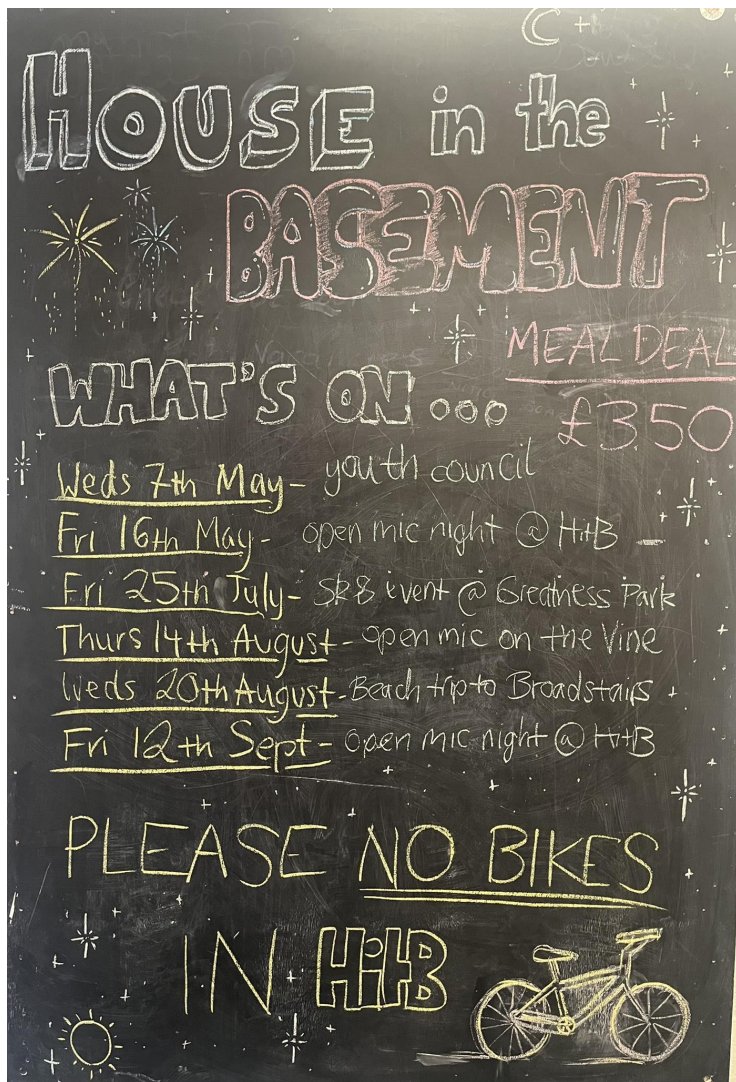 HOUSE in the
BASEMENT
MEAL DEAL
£350
WHAT'S ON...
Weds 7th May - youth council
Fri 16th May - open mic night @ HitB
Fri 25th July - SK8 event @ Greatness Park
Thurs 14th August - open mic on the Vine
Weds 20th August - Beach trip to Broadstairs
Fri 12th Sept - open mic night @ HitB
PLEASE NO BIKES
IN HitB